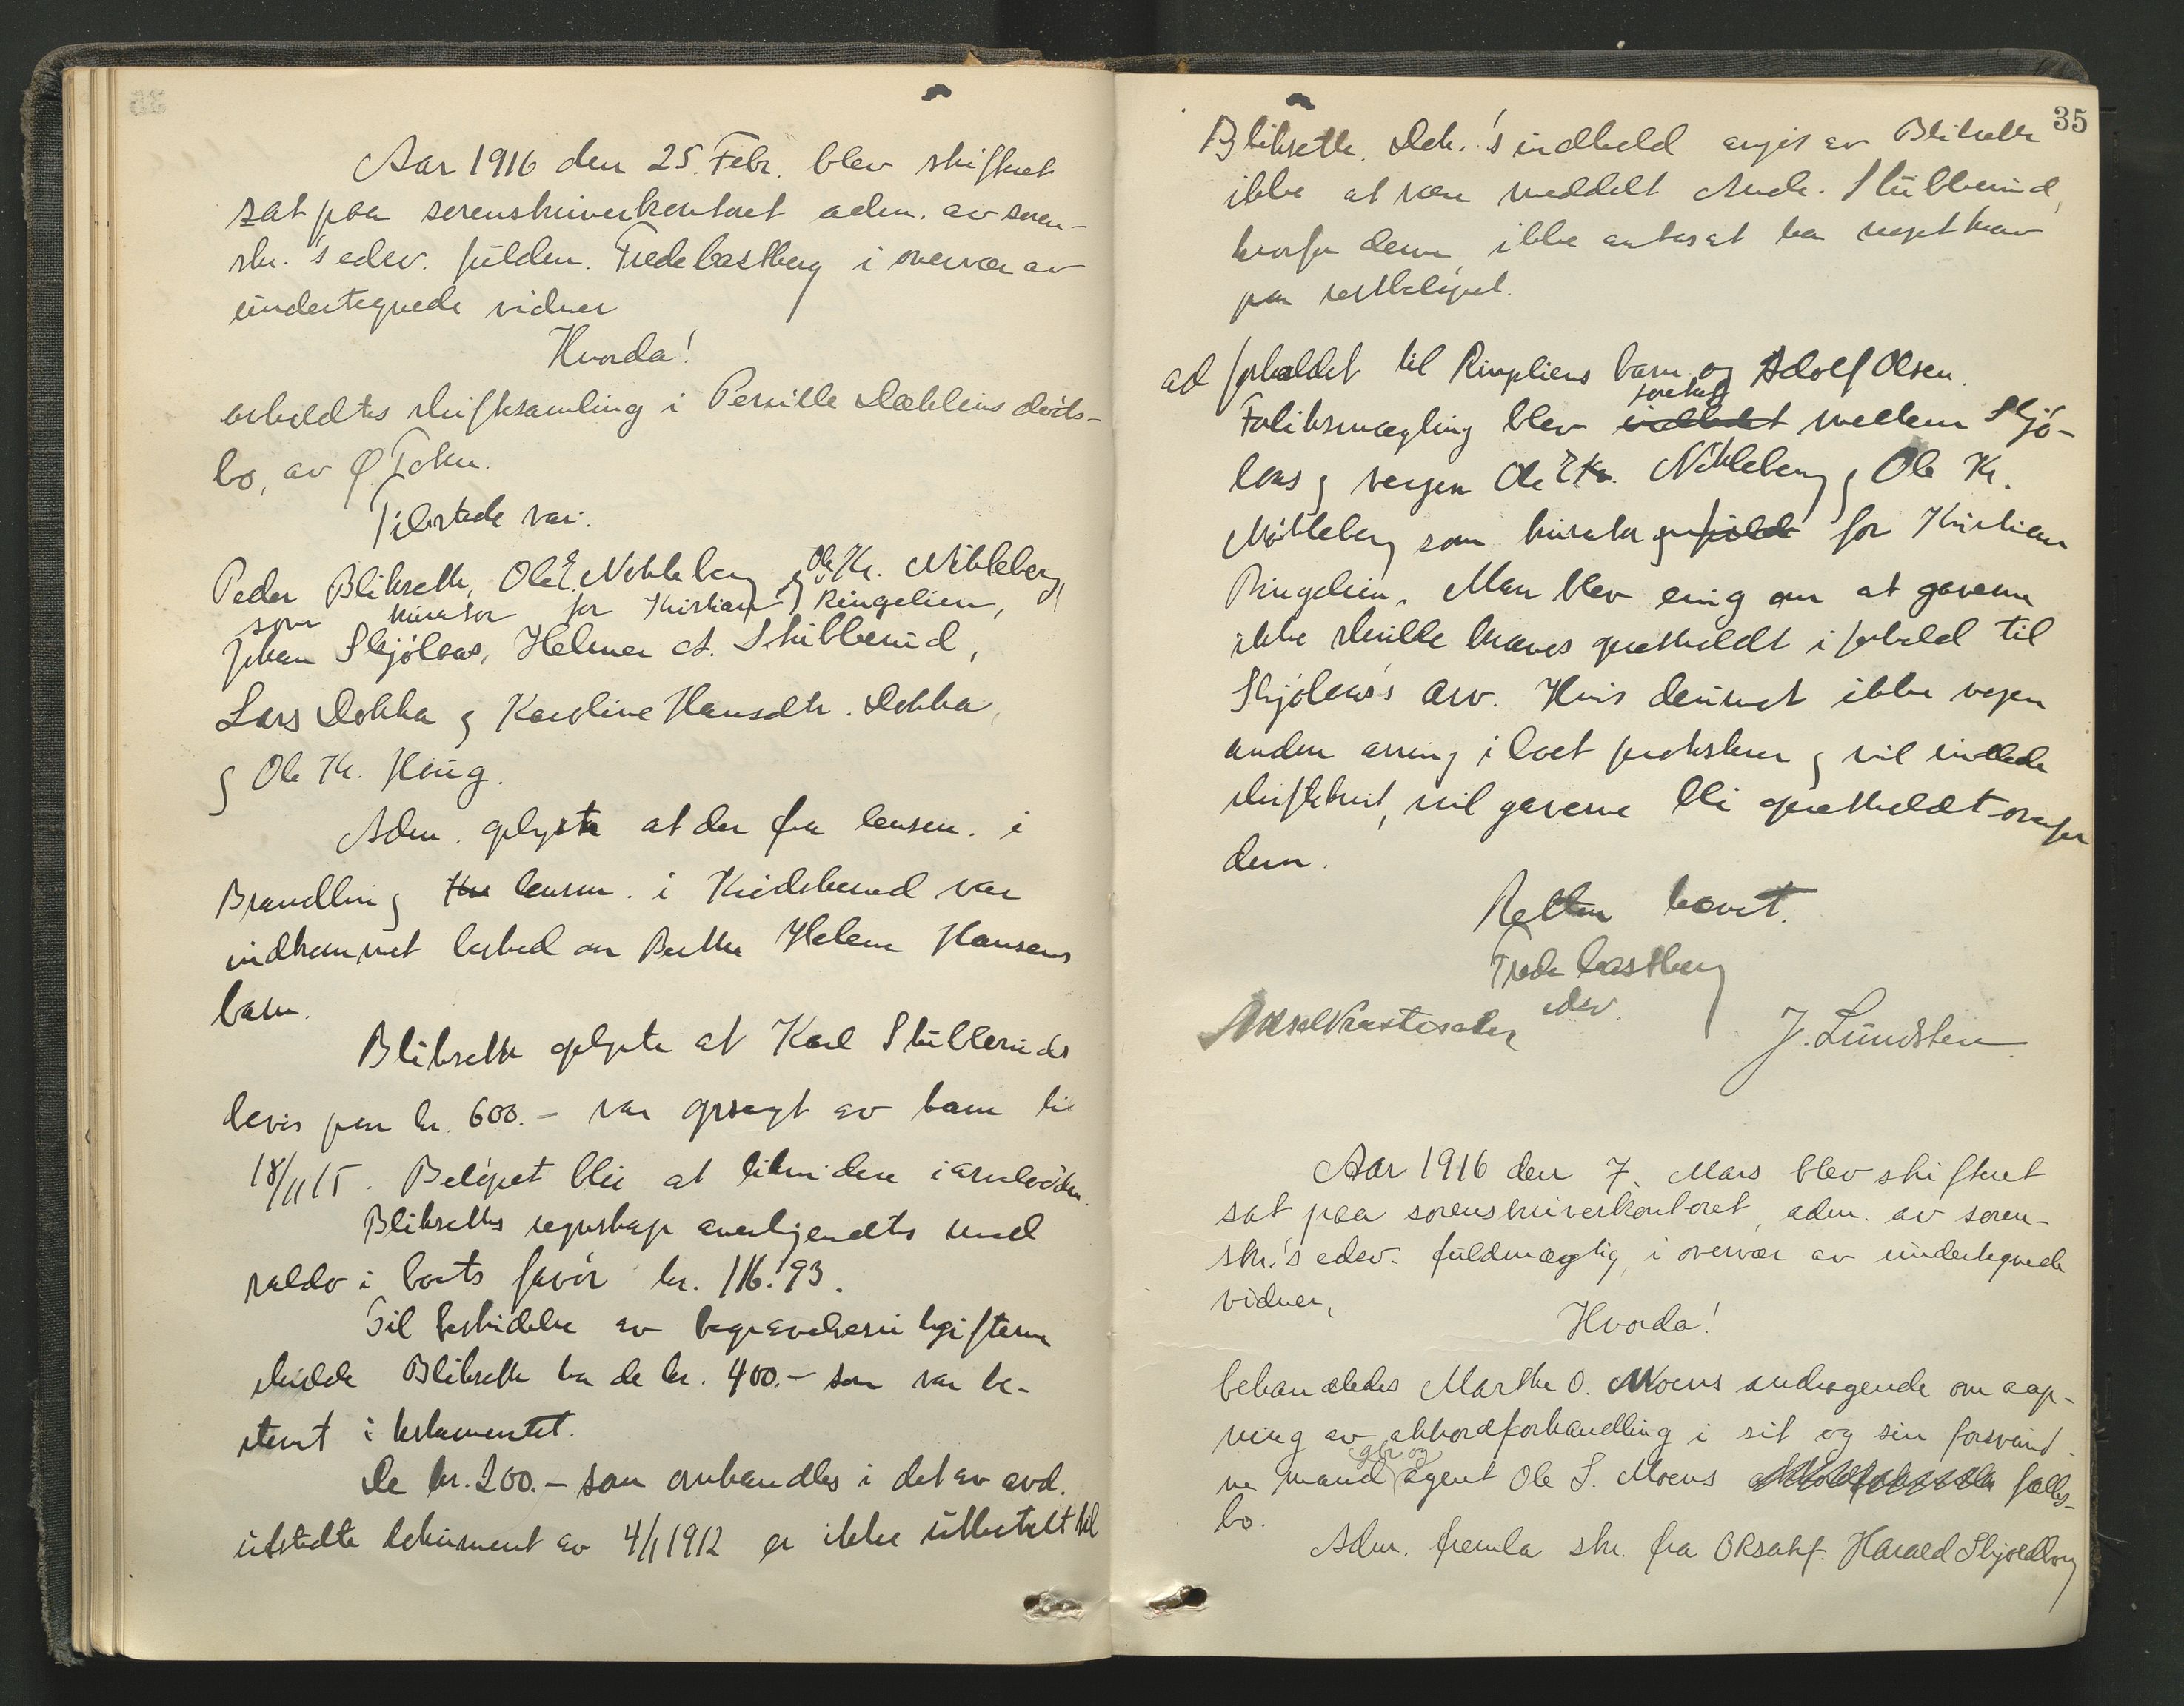 Aar 1916 den 25. Febr. blev skifteret
sat paa sorenskriverkontoret adm. av soren-
skr.'s edsv. fuldm. Frede Castberg i overvær av
undertegnede vidner
Hvorda!
avholdtes skiftesamling i Pernille Dæhlens døds-
bo, av Ø. Toten.
Tilstede var:
Peder Blikseth, Ole E. Nøkleberg og Ole Kr. Nøkleberg,
som kurator for Kristian Ringelien,
Johan Skjølaas, Helmer A. Stubberud,
Lars Dokka og Karoline Hansdtr. Dokka,
og Ole Kr. Haug.
Adm. oplyste at der fra lensm. i
Brandbu og lensm. i Kvidsherad var
indkommet besked om Berthe Helene Hansens
barn.
Blikseth oplyste at Karl Stubberuds
bevis paa kr. 600.- var opsagt av ham til
18/11 15. Beløpet blir at likvidere i arvelodden.
Blikseths regnskap anerkjendtes med
saldo i boets favør kr. 116.93.
Til bestridelse av begravelsesutgifterne
skulde Blikseth ha de kr. 400.- som var be-
stemt i testamentet.
De kr. 200.- som omhandles i det av avd.
utstedte dokument av 4/1 1912 er ikke utbetalt til
35
Blikseth. Dok.'s indhold angis av Blikseth
ikke at være meddelt Stubberud,
hvorfor denne ikke antas at ha noget krav
paa restbeløpet.
ad forholdet til Ringliens barn og Adolf Olsen.
Forliksmægling blev indledet foretat mellem Skjø-
laas og vergen Ole E. Kr. Nøkleberg og Ole Kr.
Nøkleberg som kurator for Kristian
Ringelien. Man blev enig om at gaverne
ikke skulde kræves opretholdt i forhold til
Skjølaas's arv. Hvis derimot ikke nogen
anden arving i boet protesterer og vil indlede
skiftetvist, vil gaverne bli opretholdt overfor
dem.
Retten hævet.
Frede Castberg
edsv.
J. Lundsten
Aar 1916 den 7. Mars blev skifteret
sat paa sorenskriverkontoret, adm. av soren-
skr.'s edsv. fuldmægtig, i overvær av undertegnede
vidner,
Hvorda!
behandledes Marthe O. Moens andragende om aap-
ning av akkordforhandling i sit og sin forsvund-
ne mand gbr. og agent Ole S. Moens fælles-
bo.
Adm. fremla skr. fra O.R.sakf. Harald Skjoldborg